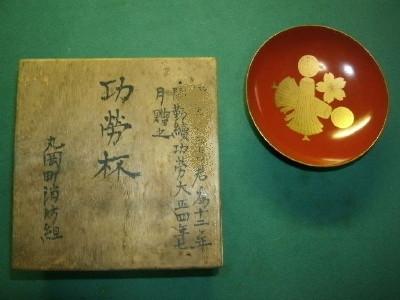 君為十二年
勤續功勞大正四年七
月贈之
功勞杯
丸岡町消防組